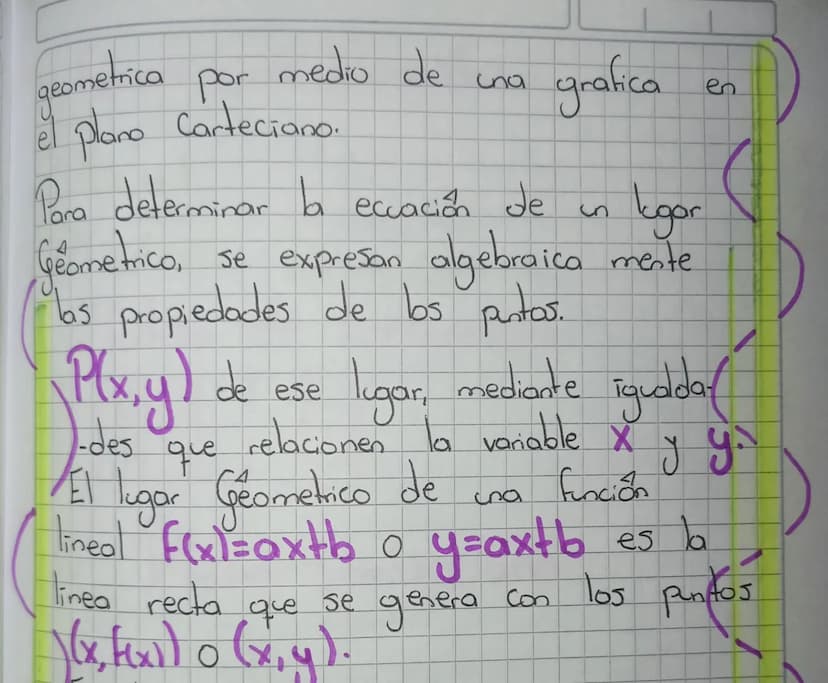 geometrica por medio de una grafica en
el plano Carteciano.
Para determinar la ecuación de un lugar
Géometrico, se expresan algebraica mente
las propiedades de los puntos.
P(x,y) de ese lugar, mediante igualda-
-des que relacionen la variable x y y.
El lugar Géometrico de una función
lineal f(x)=ax+b o y=ax+b es la
linea recta que se genera con los puntos
(x,f(x)) o (x,y).